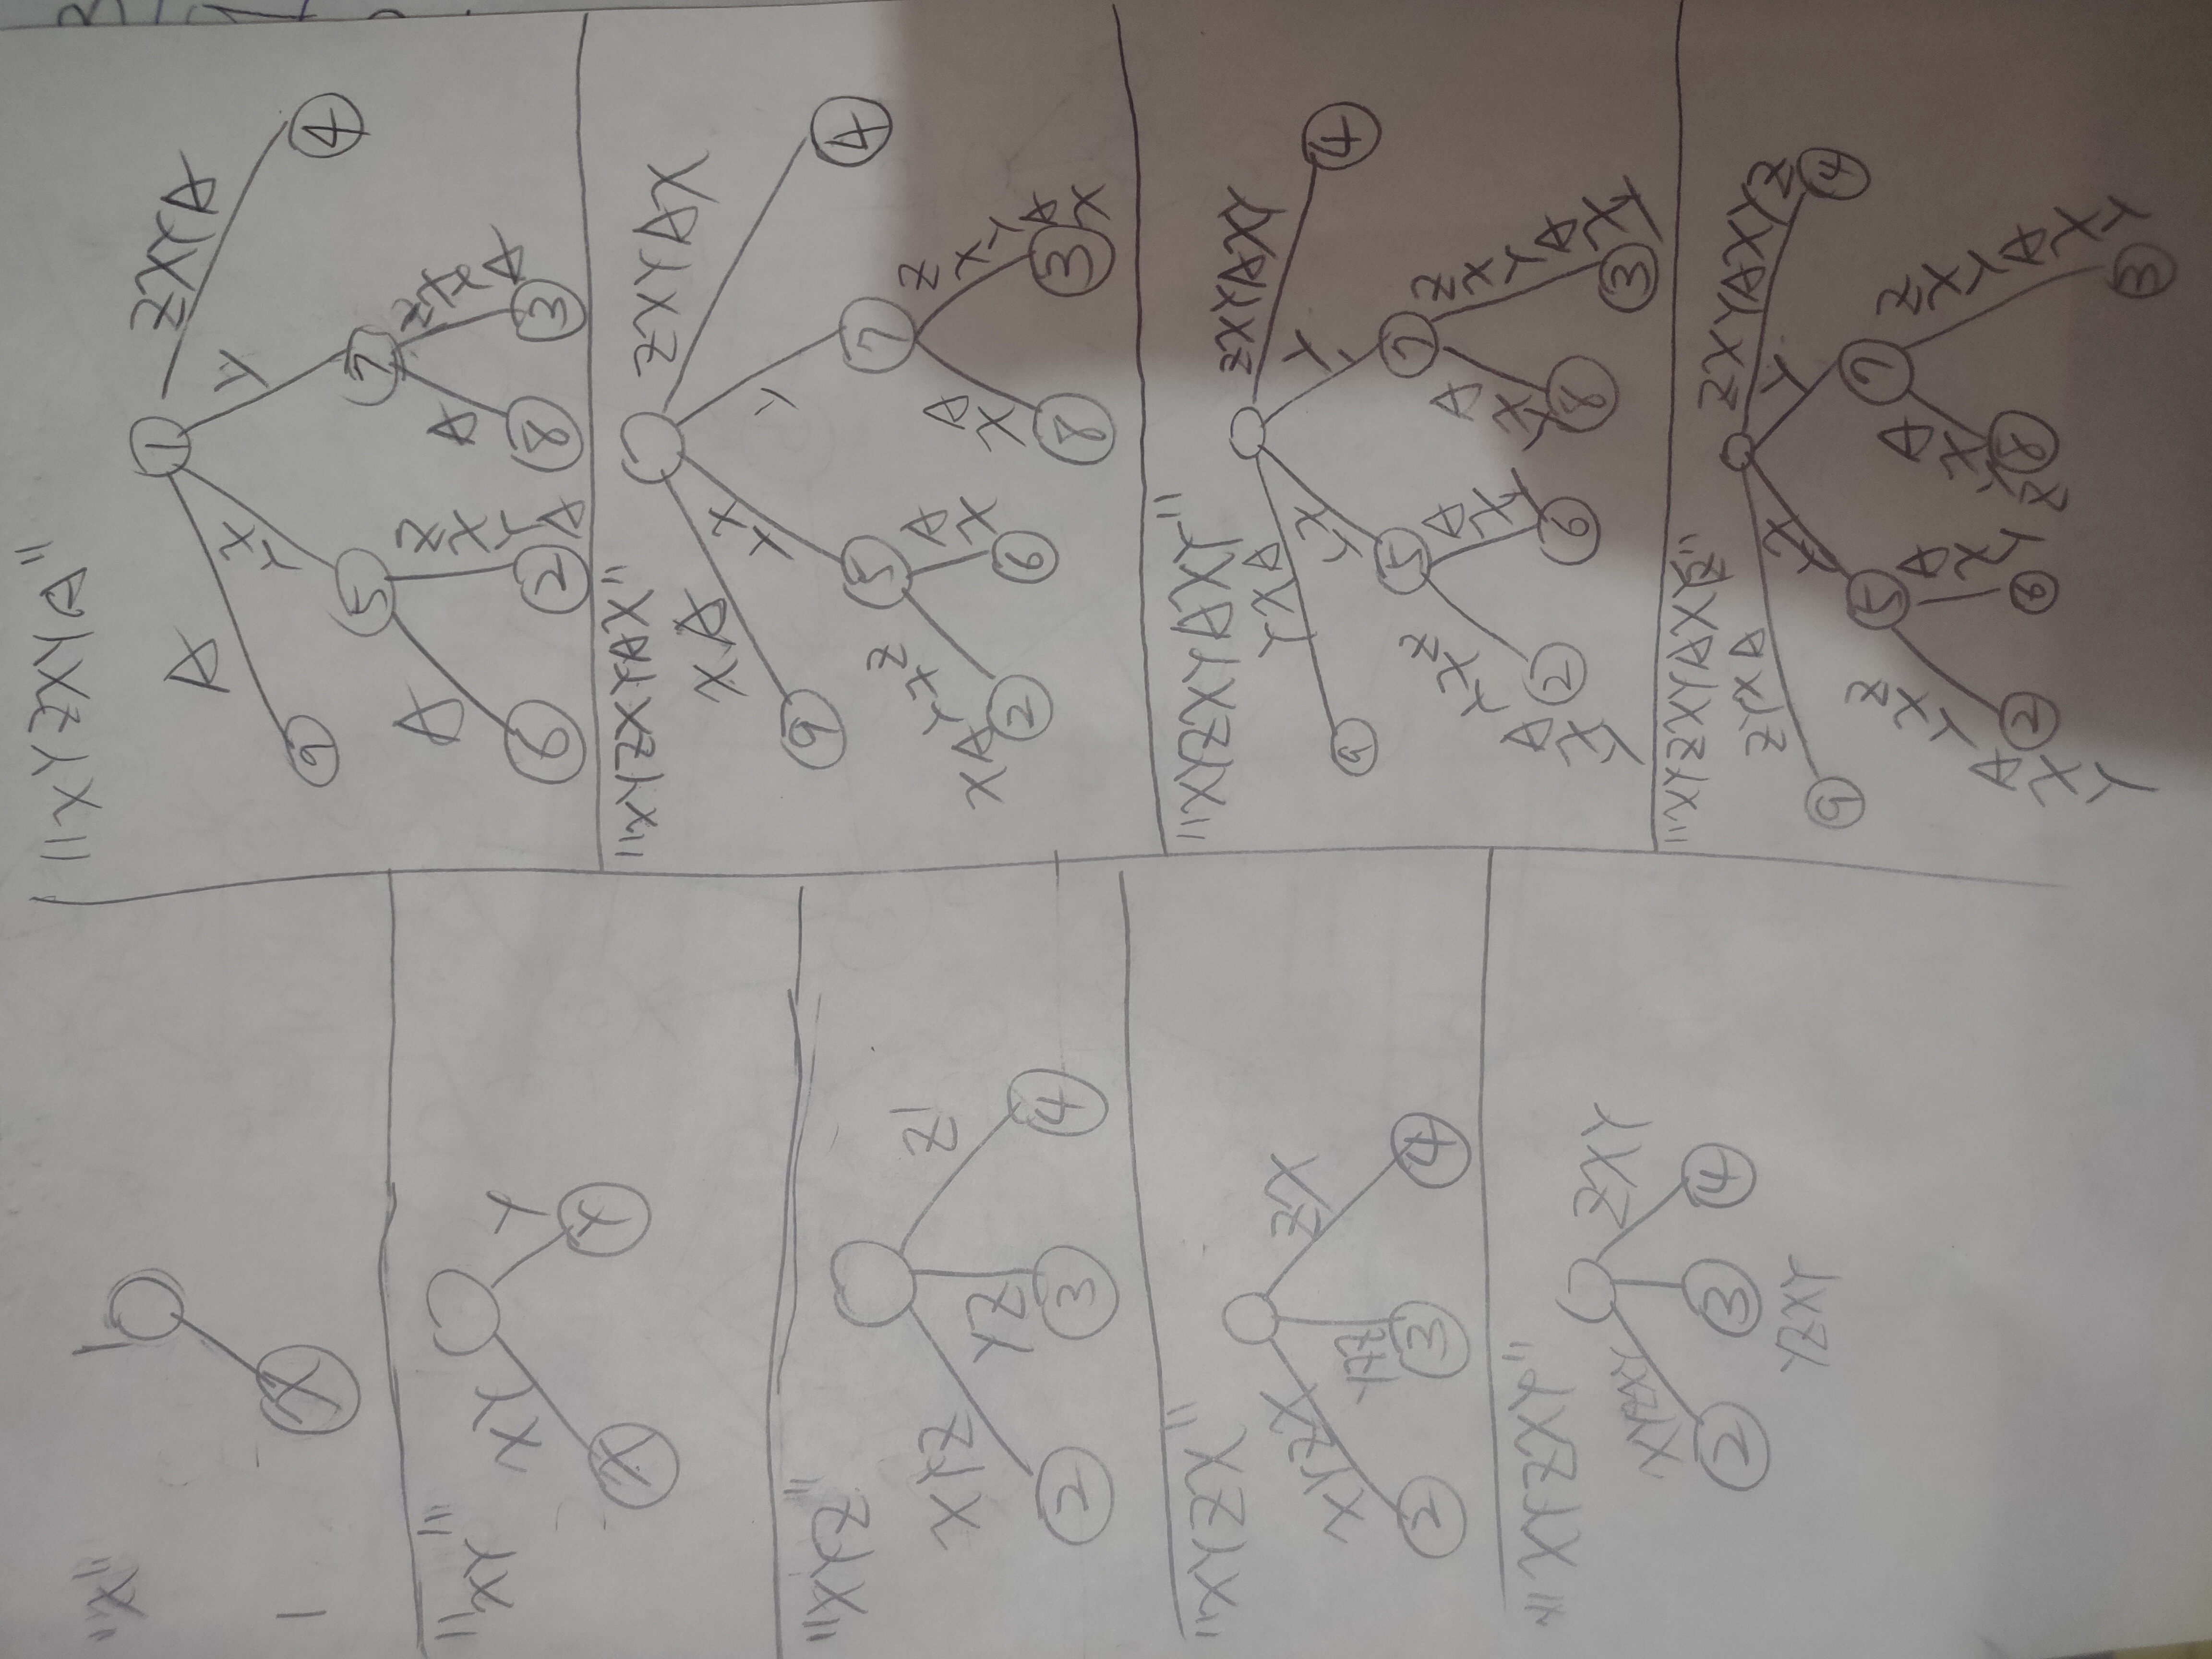 "X"
1
X
1
"XY"
XY
Y
X
Y
"XYZ"
XYZ
YZ
Z
2
3
4
"XYZX"
XYZX
ZX
2
3
4
"XYZXY"
XYZXY
ZXY
2
3
4
YZXY
"XYZXYA"
1
A
XY
Y
ZXYA
9
5
7
4
A
ZXYA
A
ZXYA
6
2
8
3
"XYZXYAX"
XA
XY
Y
ZXYAX
9
5
7
4
ZXYAX
AX
AX
ZXYAX
2
6
8
3
"XYZXYAXY"
YXA
XY
Y
ZXYAXY
9
5
7
4
ZXYAXY
AXY
AXY
ZXYAXY
2
6
8
3
"XYZXYAXYZ"
ZYXA
XY
Y
ZXYAXYZ
9
5
7
4
ZXYAXY
AXY
AXYZ
ZXYAXY
2
6
8
3